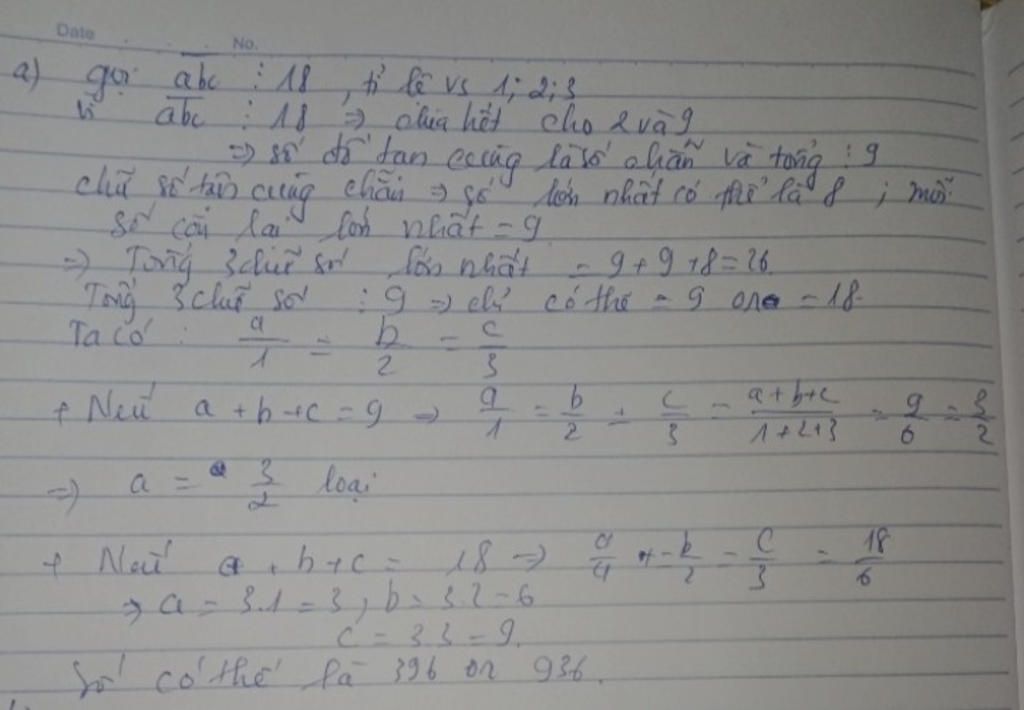 Date No.
a) gọi abc ⋮ 18, tỉ lệ vs 1; 2; 3
vì abc ⋮ 18 => chia hết cho 2 và 9
=> số tận cùng là số chẵn và tổng ⋮ 9
chữ số tận cùng chẵn => số lớn nhất có thể là 8 ; mỗi
số còn lại lớn nhất = 9
=> Tổng 3 chữ số lớn nhất = 9 + 9 + 8 = 26
Tổng 3 chữ số ⋮ 9 => chỉ có thể = 9 or = 18
Ta có : a/1 = b/2 = c/3
+ Nếu a + b + c = 9 => a/1 = b/2 = c/3 = a+b+c/1+2+3 = 9/6 = 3/2
=> a = 3/2 loại
+ Nếu a + b + c = 18 => a/1 = b/2 = c/3 = 18/6
=> a = 3.1 = 3, b = 3.2 = 6
c = 3.3 = 9.
Số có thể là 396 or 936.